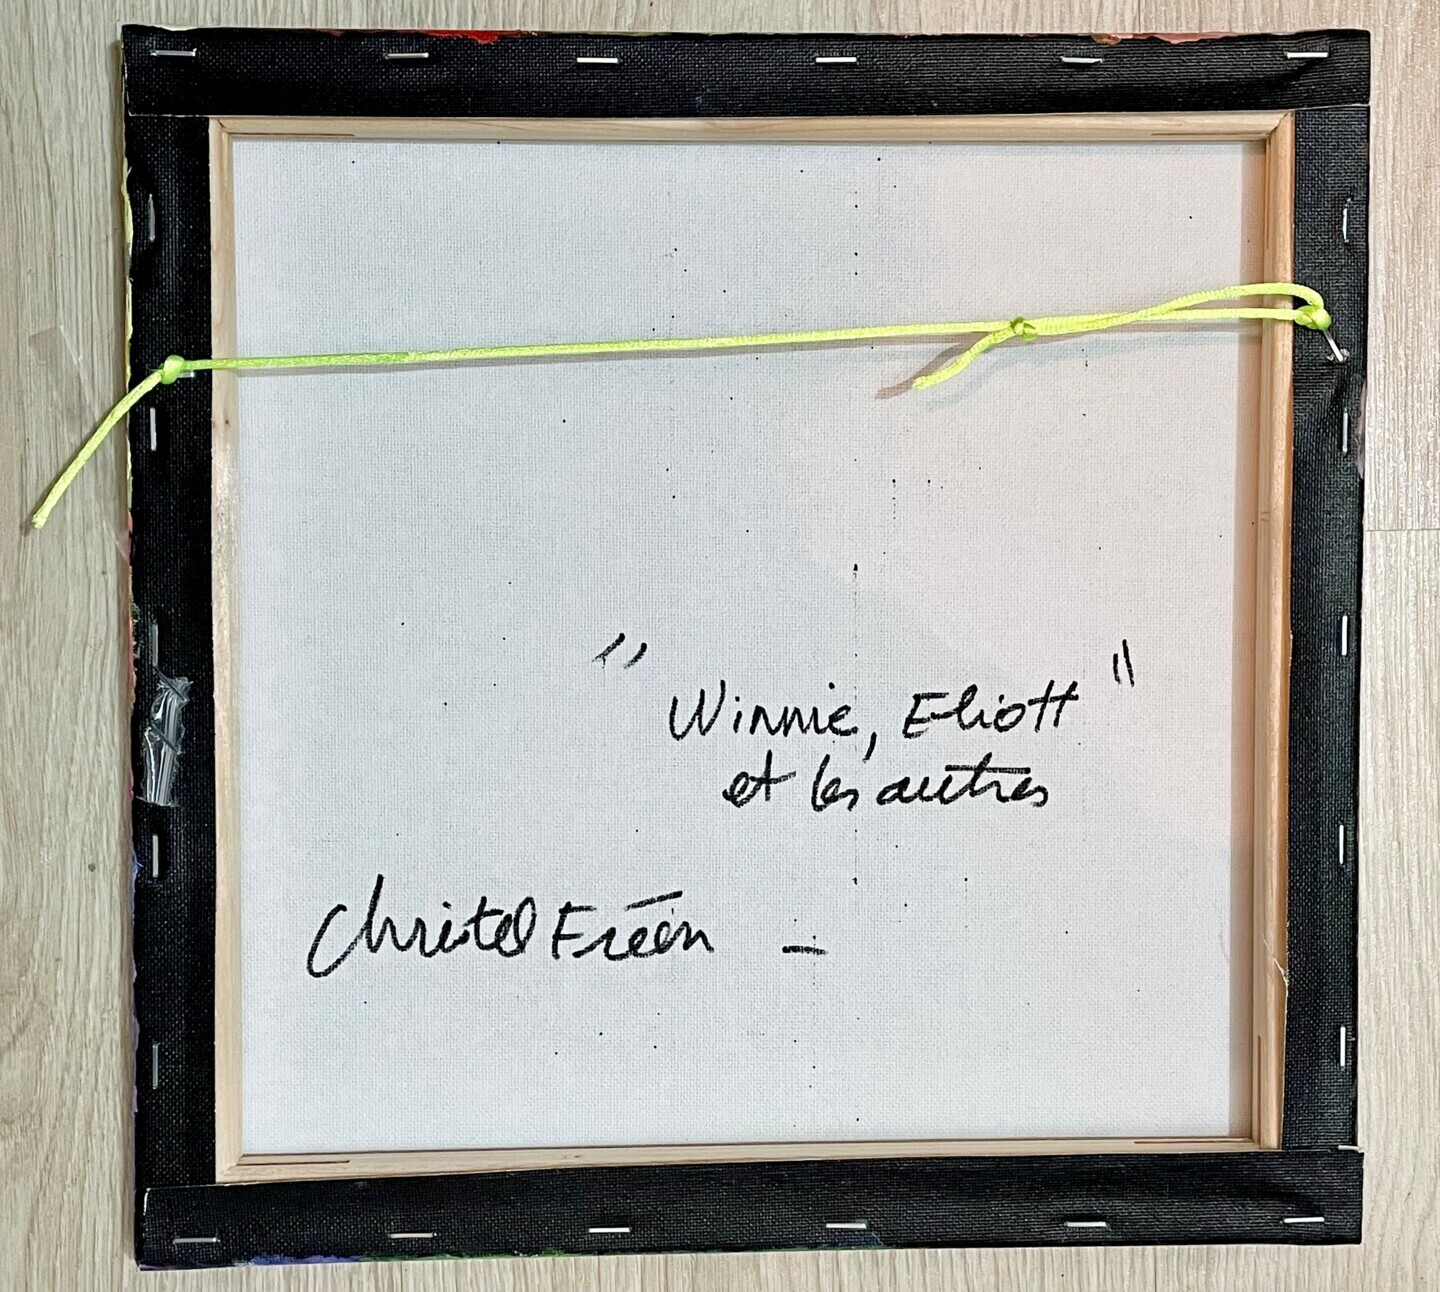 " Winnie, Eliott "
et les autres
Christel Fréon -